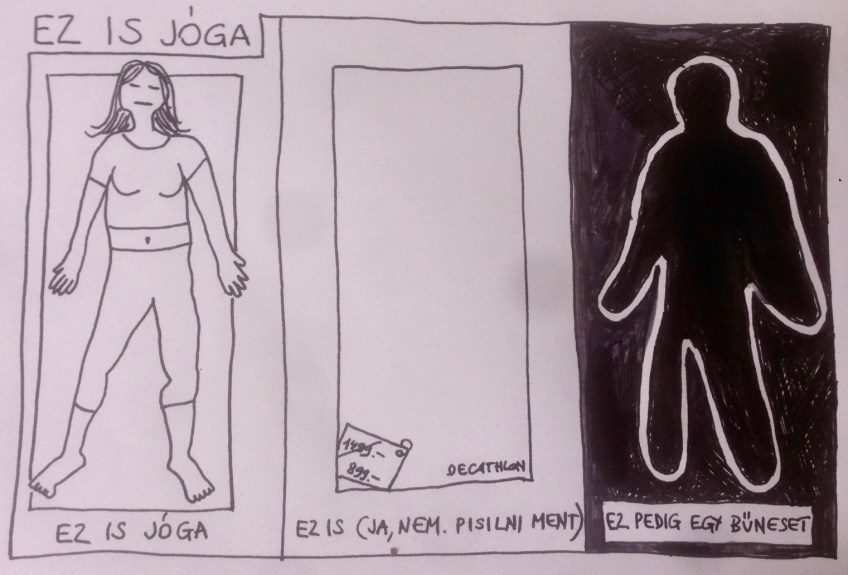 EZ IS JÓGA
EZ IS JÓGA
1499.-
899.-
DECATHLON
EZ IS (JA, NEM. PISILNI MENT)
EZ PEDIG EGY BŰNESET